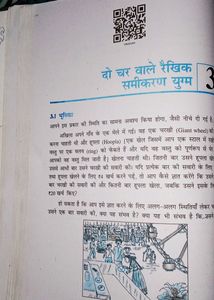 दो चर वाले रैखिक
समीकरण युग्म
3
3.1 भूमिका
आपने इस प्रकार की स्थिति का सामना अवश्य किया होगा, जैसी नीचे दी गई है :
अखिला अपने गाँव के एक मेले में गई। वह एक चरखी (Giant wheel) की सवारी
करना चाहती थी और हूपला (Hoopla) [एक खेल जिसमें आप एक स्टाल में रखी किसी
वस्तु पर एक वलय (ring) को फेंकते हैं और यदि वह वस्तु को पूर्णरूप से घेर ले, तो
आपको वह वस्तु मिल जाती है] खेलना चाहती थी। जितनी बार उसने हूपला खेल खेला
उससे आधी बार उसने चरखी की सवारी की। यदि प्रत्येक बार की सवारी के लिए उसे
तथा हूपला खेलने के लिए ₹4 खर्च करने पड़े, तो आप कैसे ज्ञात करेंगे कि उसने कितनी
बार चरखी की सवारी की और कितनी बार हूपला खेला, जबकि उसने इसके लिए कुल
₹20 खर्च किए?
हो सकता है कि आप इसे ज्ञात करने के लिए अलग-अलग स्थितियाँ लेकर चलें। यदि
उसने एक बार सवारी की, क्या यह संभव है? क्या यह भी संभव है कि उसने